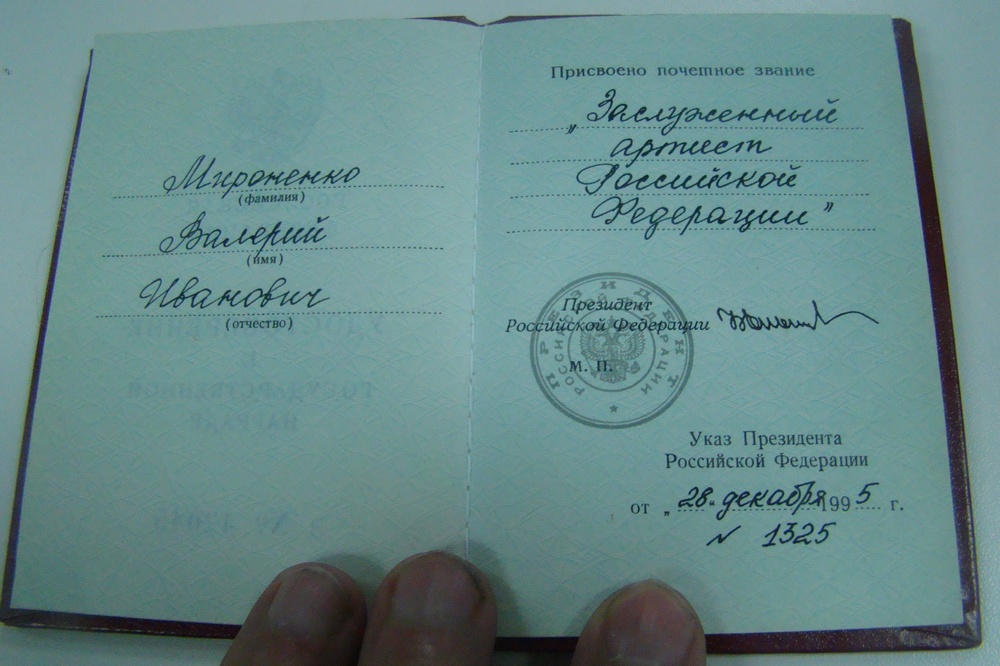 Мироненко
(фамилия)
Валерий
(имя)
Иванович
(отчество)
Присвоено почетное звание
„Заслуженный
артист
Российской
Федерации”
ПРЕЗИДЕНТ
РОССИЙСКОЙ ФЕДЕРАЦИИ
Президент
Российской Федерации
М. П.
Указ Президента
Российской Федерации
от „28“ декабря 1995 г.
N 1325